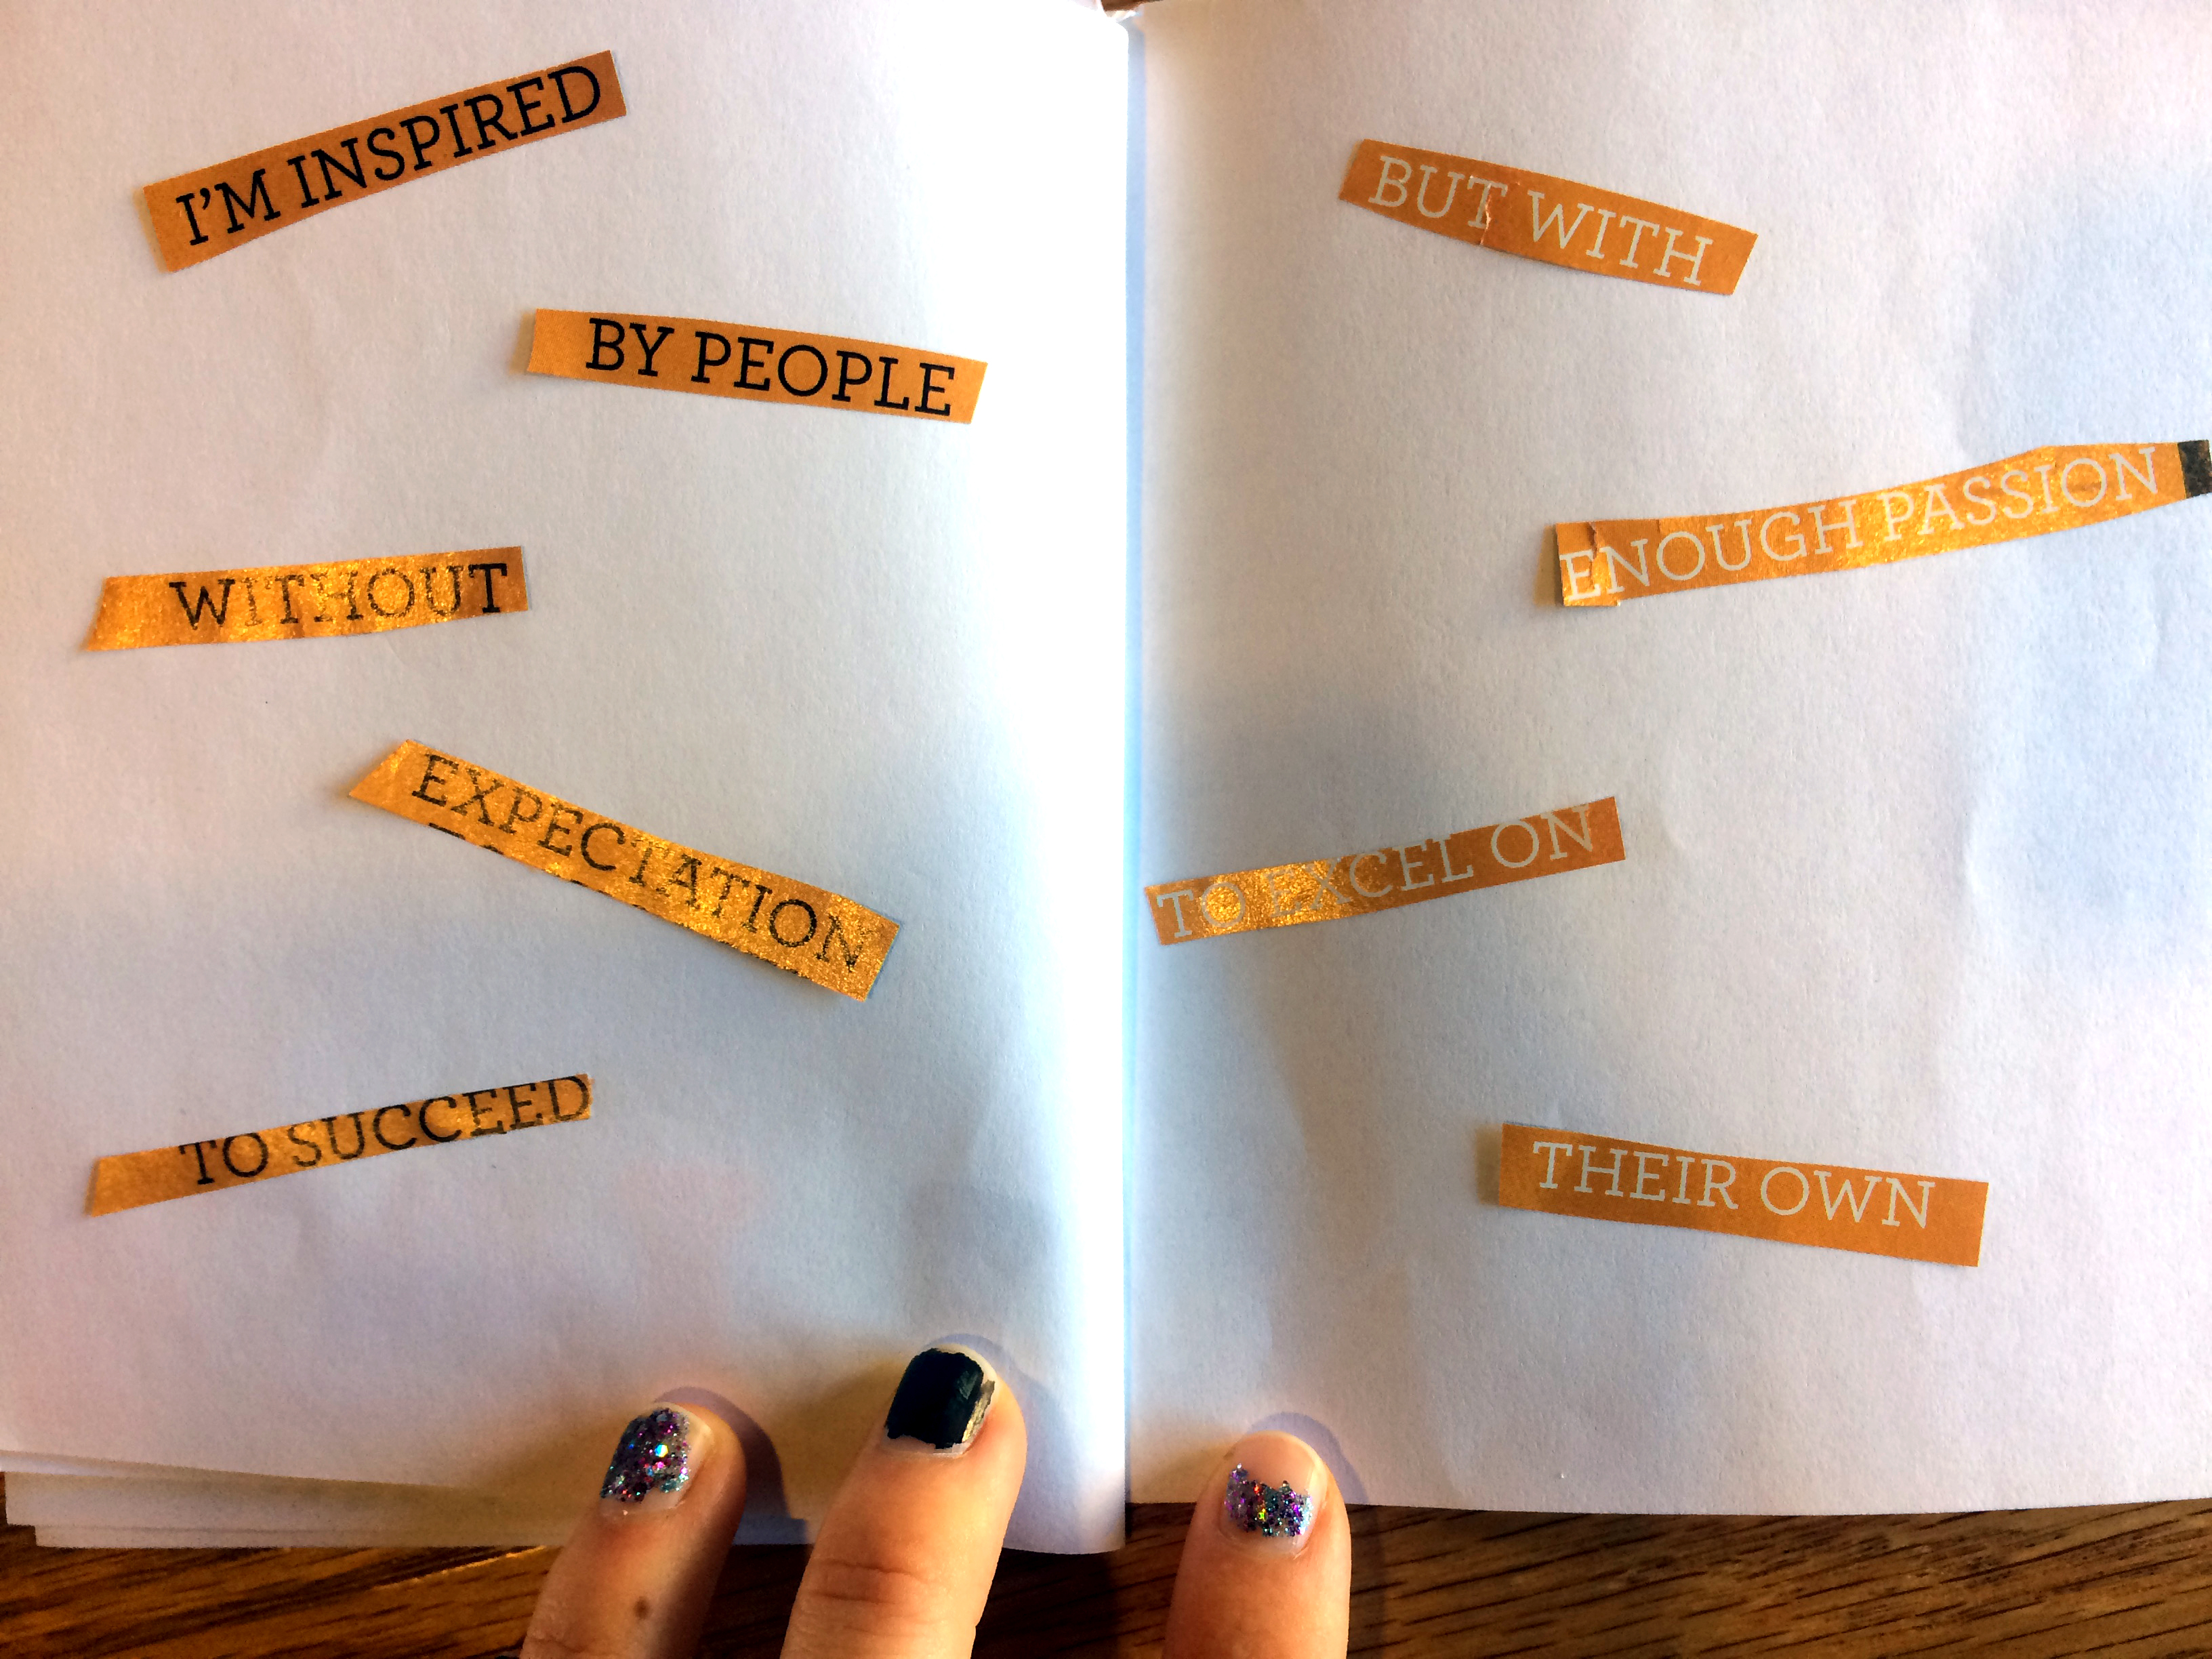 I'M INSPIRED
BY PEOPLE
WITHOUT
EXPECTATION
TO SUCCEED
BUT WITH
ENOUGH PASSION
TO EXCEL ON
THEIR OWN